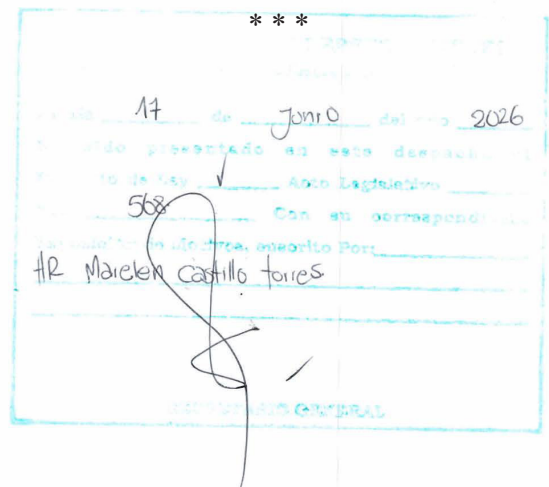 * * *
17 de Junio del 2026
sido presentado en este despacho
de Ley ✓ Acto Legislativo
568 Con su correspondiente
suscrito Por:
HR Marelen Castillo torres
SECRETARIO GENERAL